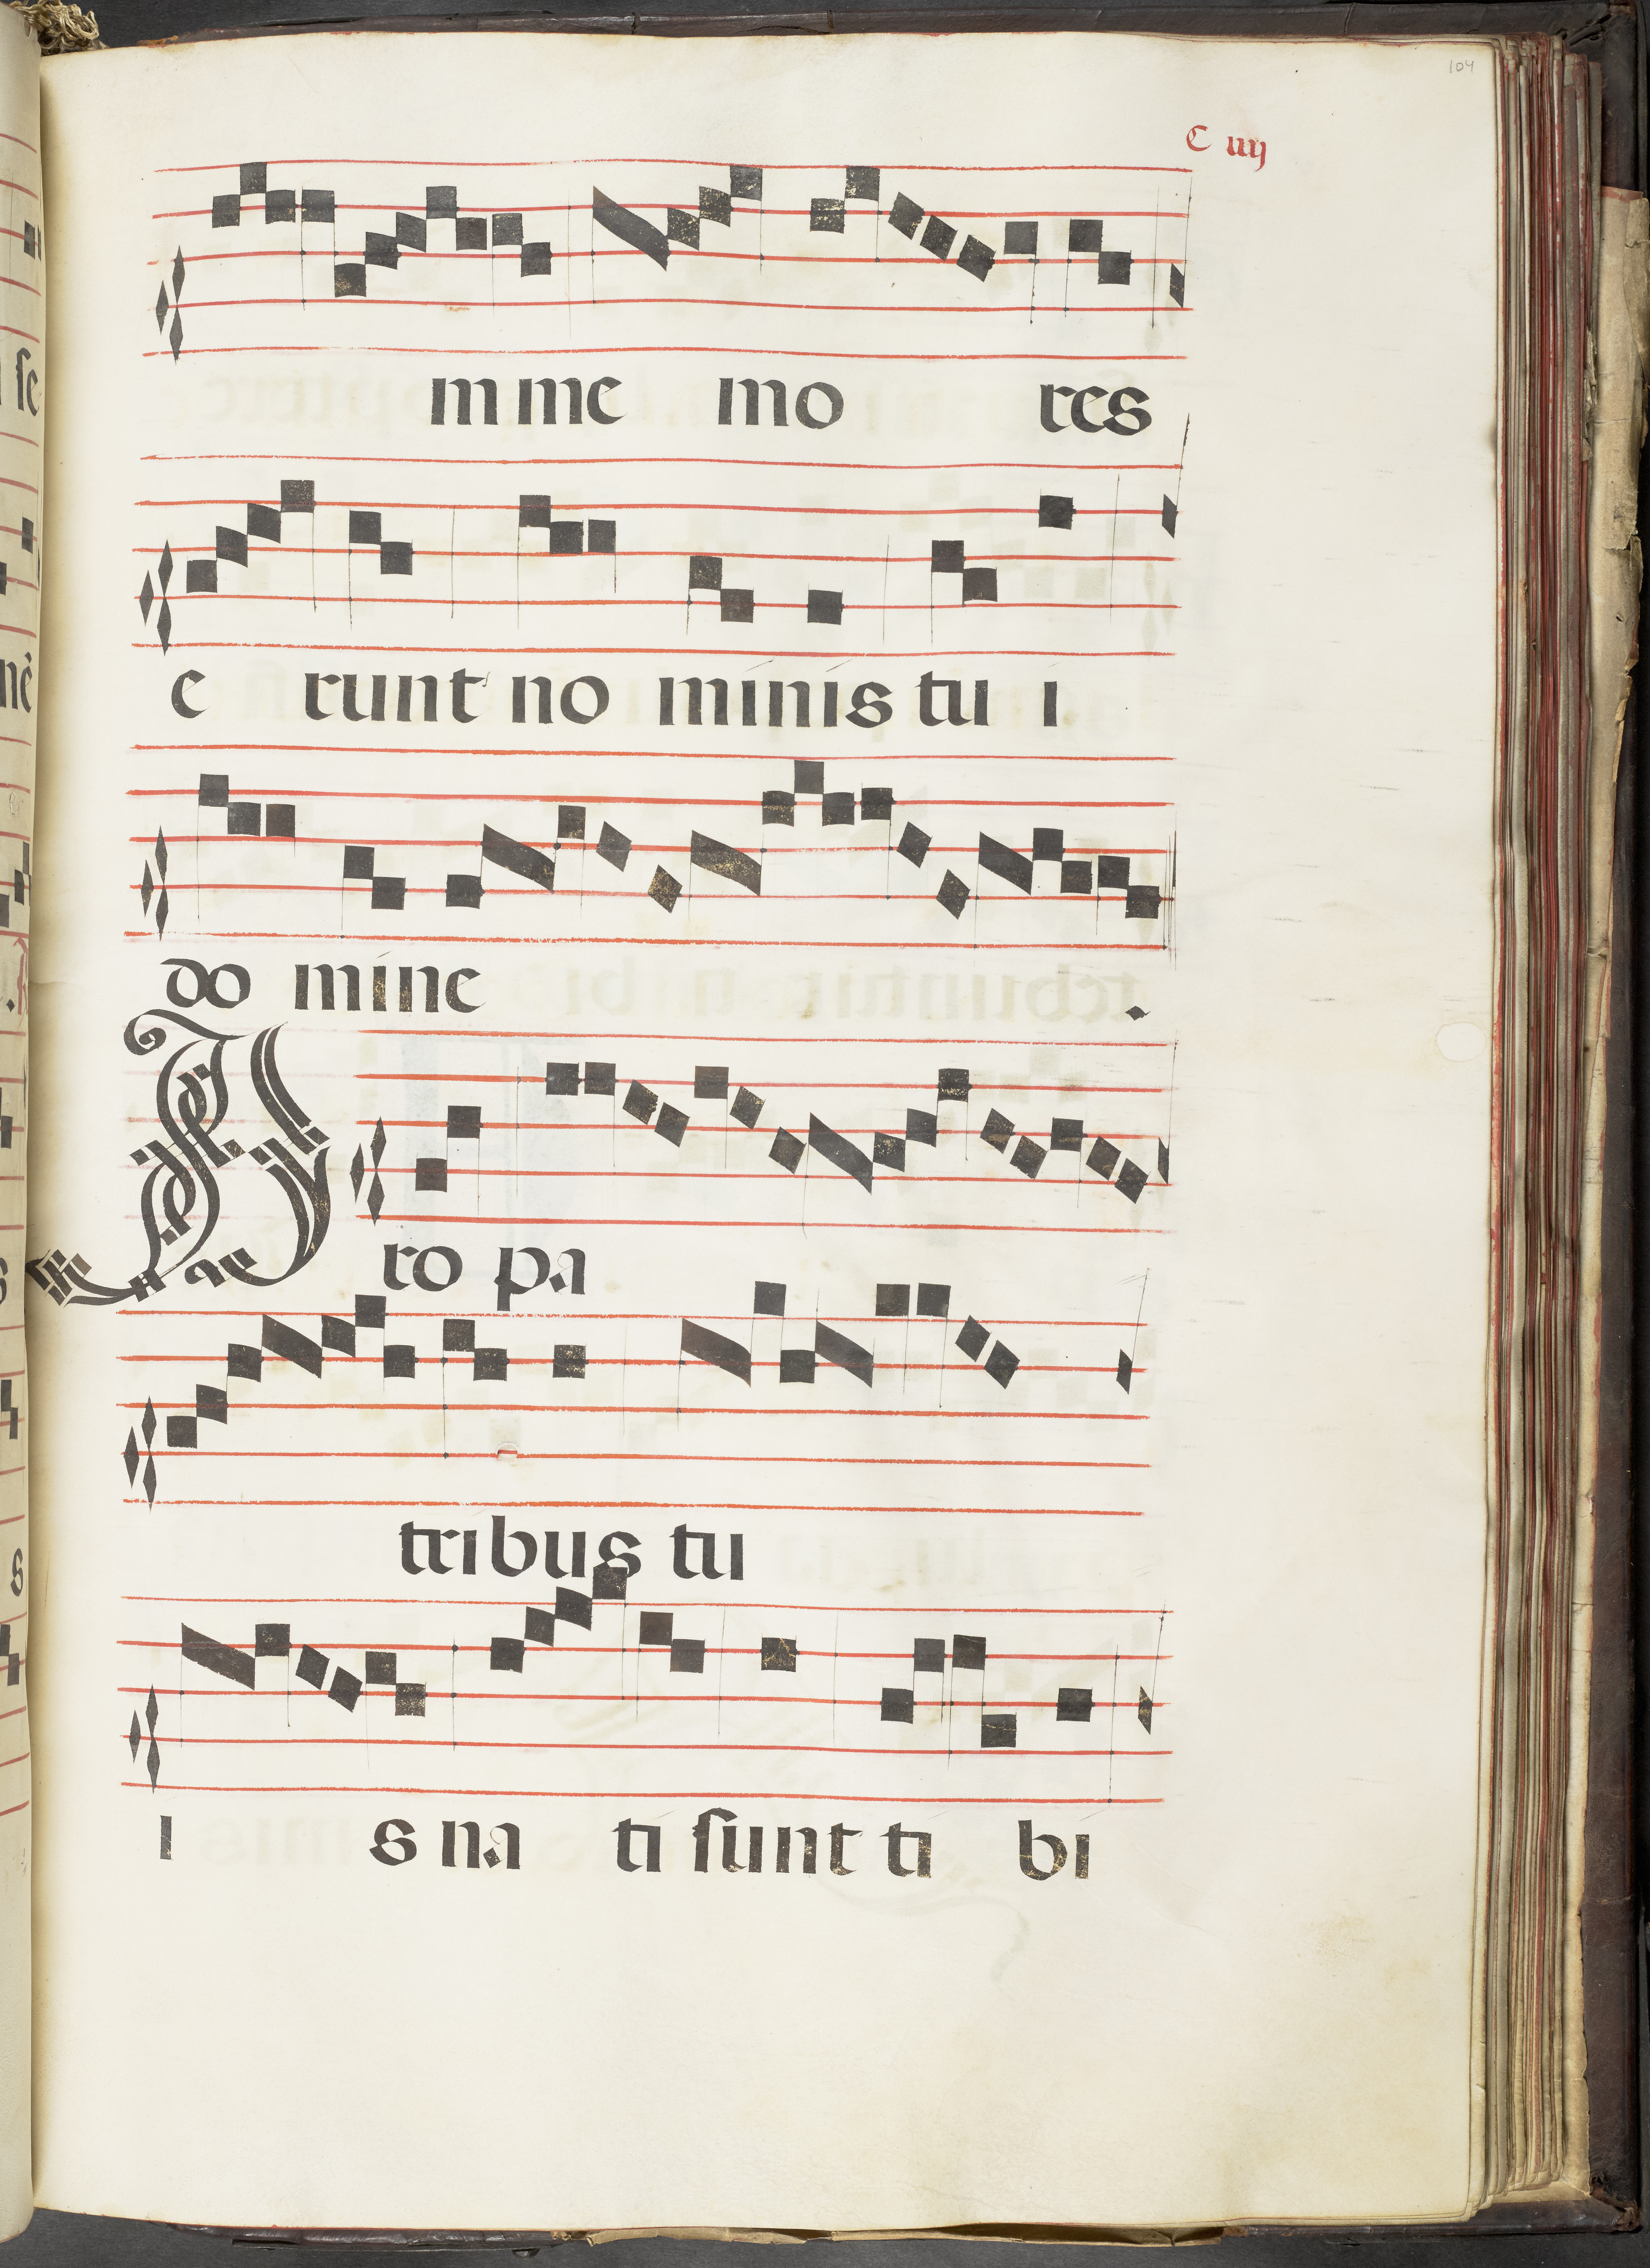 104
C iiij
mme mo res
e runt no minis tu i
do mine .
Pro pa
tribus tu
i s na ti sunt ti bi